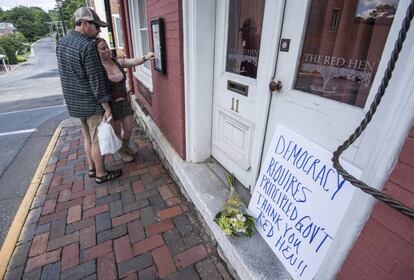 THE RED-HEN
11
DEMOCRACY
REQUIRES
PRINCIPLED GOV'T
THANK YOU
RED HEN!!